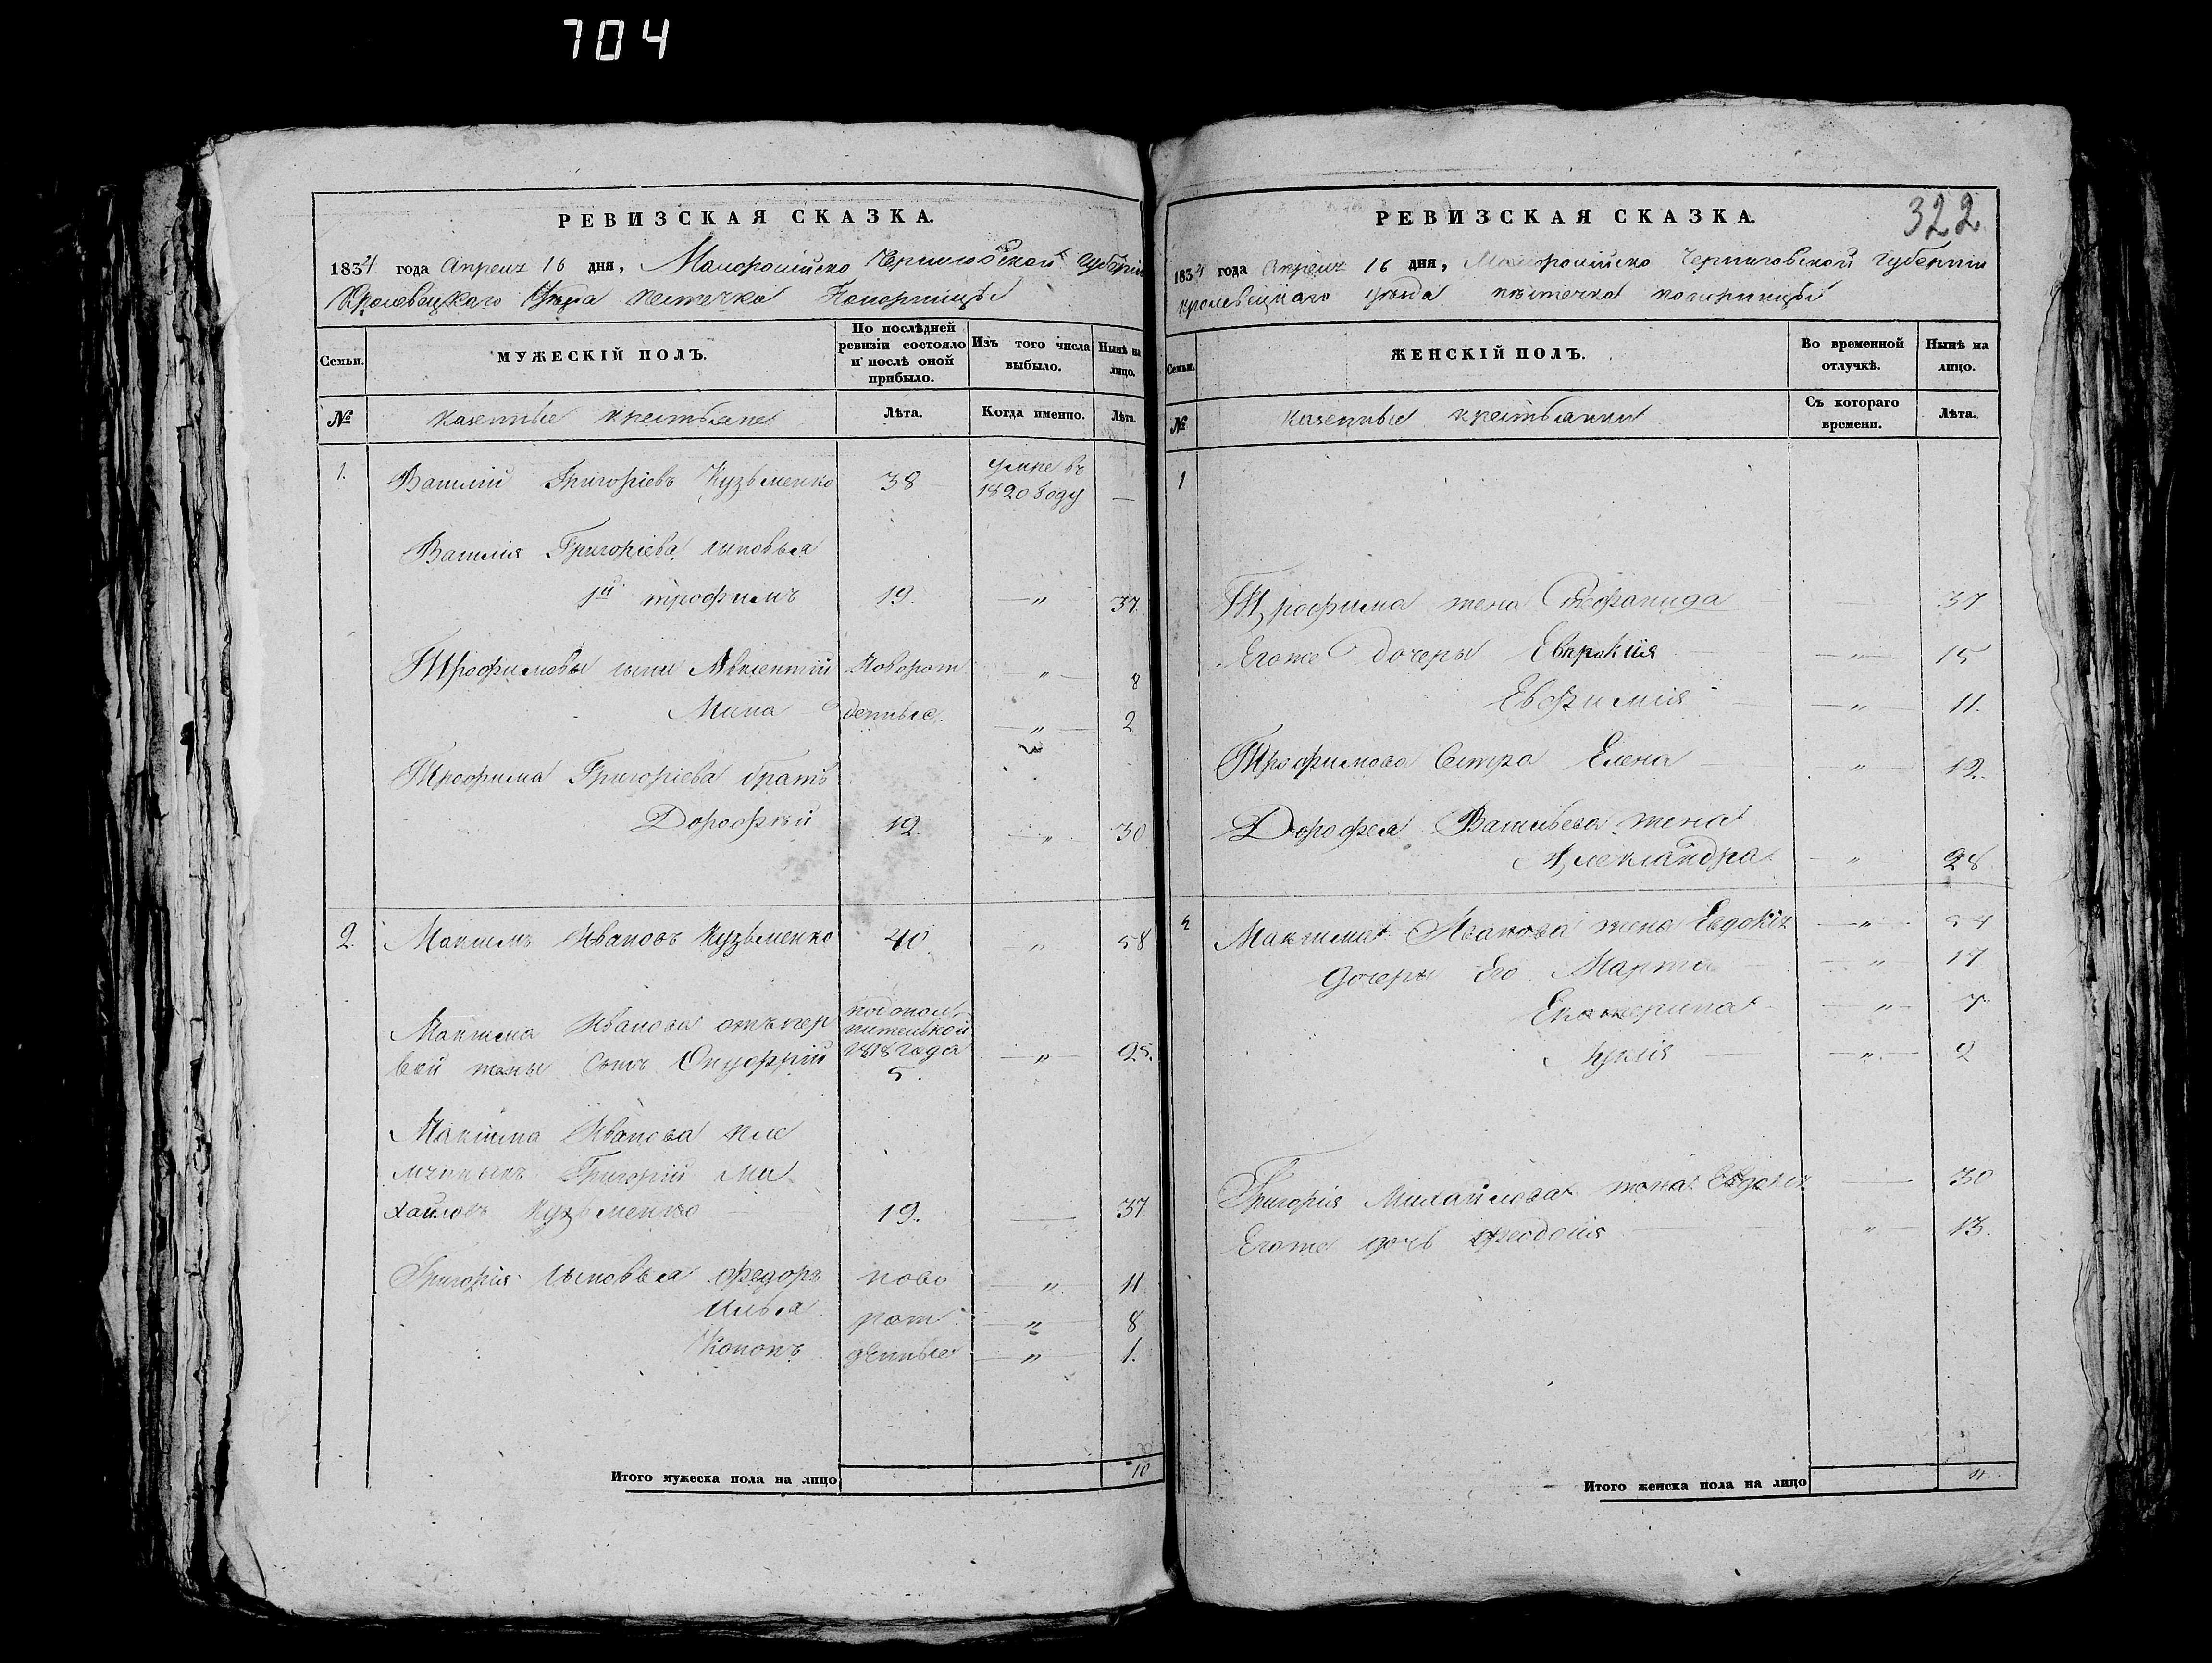 704
РЕВИЗСКАЯ СКАЗКА.
1834 года Апреля 16 дня, Малоросійско Черниговской Губерніи
Кролевецкого Уезда местечка Понорницы
Семьи.
МУЖЕСКІЙ ПОЛЪ.
По послѣдней ревизіи состояло и послѣ оной прибыло.
Изъ того числа выбыло.
Нынѣ на лицо.
№
казенные крестьяне
Лѣта.
Когда именно.
Лѣта.
1. Василий Григоріевъ Кузьменко 38 умре въ 1820 году —
Василия Григоріева сыновья
1й трофимъ 19. — " 37.
Трофимовы сыны Авксентий Новорож — " — 8
Мина денные. — " — 2
Трофима Григоріева братъ
Дорофѣй 12. — " 30
2. Максимъ Ивановъ Кузьменко 40 " 58
Максима Иванова отъ пер
вой жены сынъ Онуфрій
1818 года
5. — " — 25.
Максима Иванова пле
мянныкъ Григорій Ми
хайловъ Кузьменко 19. — 37.
Григорія сыновья Федоръ ново — " — 11
Илья рож — " — 8
Кононъ денные — " — 1.
Итого мужеска пола на лицо 10
РЕВИЗСКАЯ СКАЗКА.
322
1834 года Апреля 16 дня, Малоросійско Черниговской Губерніи
кролевецкаго уѣзда мѣстечка понорницы
Семьи.
ЖЕНСКІЙ ПОЛЪ.
Во временной отлучкѣ.
Нынѣ на лицо.
№
казенные крестьянки
Съ котораго времени.
Лѣта.
1
Трофима жена 37.
Егоже дочеры Евпракия — " — 15
Евфимия — " — 11.
Трофимова Сестра Елена — " — 12.
Дорофея Васильева жена
Александра — " — 28
2 Максима Иванова жена Евдокія — " —
дочеры Его Марта — " — 17
Екатерина — " — 7
— " — 2
Григорія Михайлова жена Евдокія — 30
Егоже дочь Феодосия — " — 13.
Итого женска пола на лицо 11